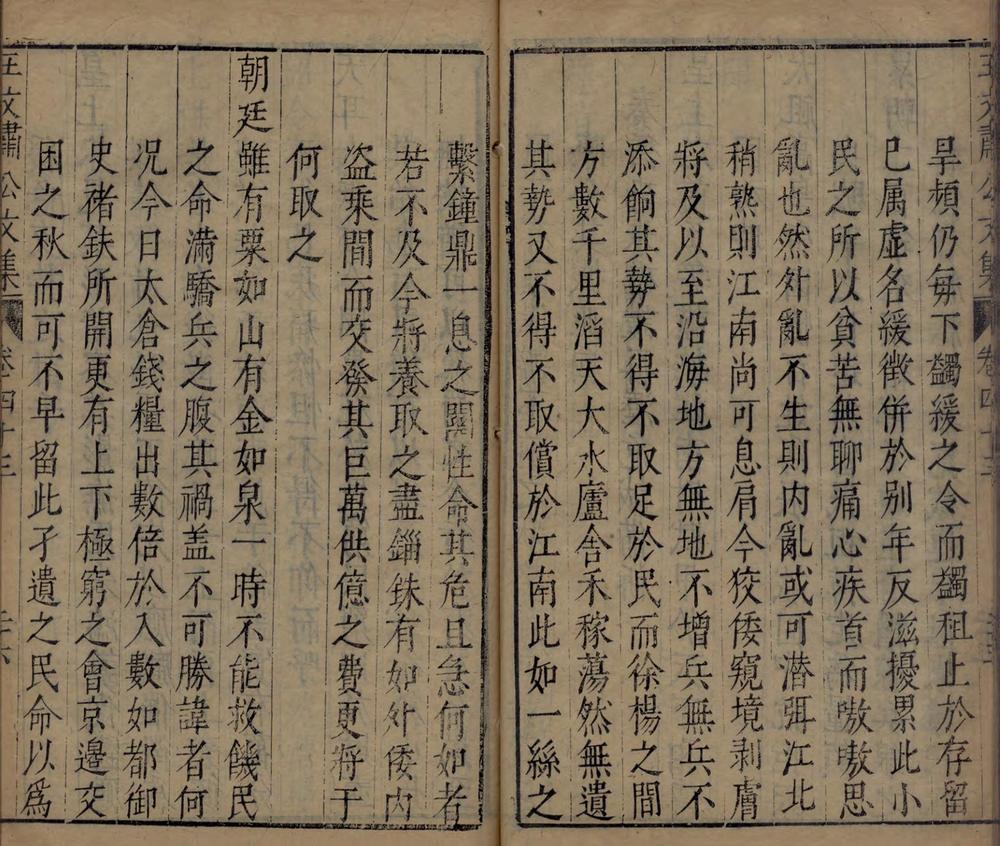 旱頻仍每下蠲緩之令而蠲租止於存留
已属虛名緩徵併於别年反滋擾累此小
民之所以貧苦無聊痛心疾首而嗷嗷思
亂也然外亂不生則内亂或可潜弭江北
稍熟則江南尚可息肩今狡倭窺境剥膚
將及以至沿海地方無地不增兵無兵不
添餉其勢不得不取足於民而徐楊之間
方數千里滔天大水廬舍禾稼蕩然無遺
其勢又不得不取償於江南此如一絲之
繫鐘鼎一息之關性命其危且急何如者
若不及今將養取之盡錙銖有如外倭内
盗乘間而交發其巨萬供億之費更將于
何取之
朝廷雖有粟如山有金如泉一時不能救饑民
之命滿驕兵之腹其禍盖不可勝諱者何
况今日太倉錢糧出數倍於入數如都御
史禇鈇所開更有上下極窮之會京邊交
困之秋而可不早留此孑遺之民命以為
王文肅公文集
卷四十三
王文肅公文集
卷之四十三